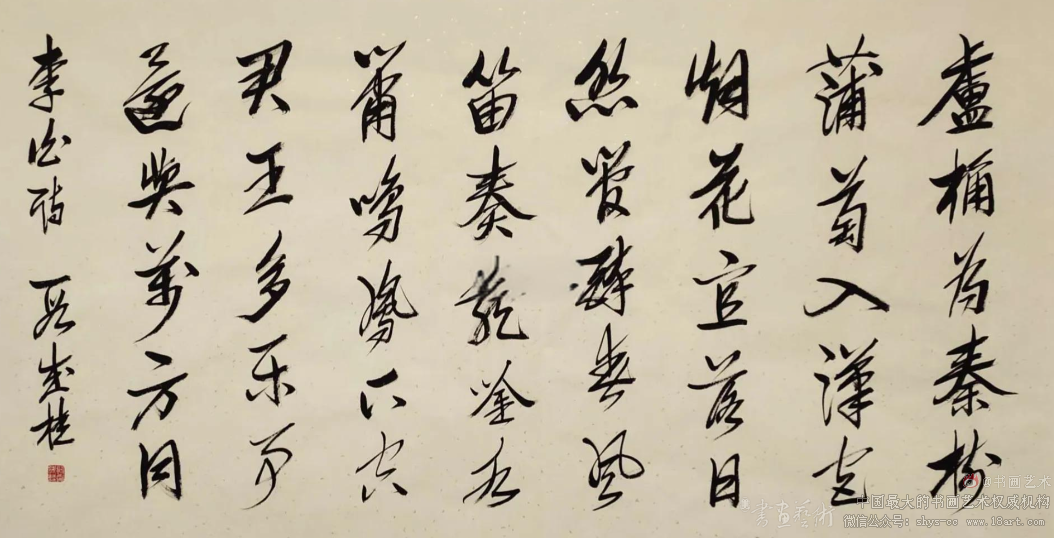 盧橘为秦树
蒲萄入漢宫
烟花宜落日
丝管醉春风
笛奏龍吟水
箫鳴鳳下空
君王多乐事
還與萬方同
李白诗 段成桂
@书画艺术
中国最大的书画艺术权威机构
書畫藝術
微信公众号:shys-cc www.18art.com